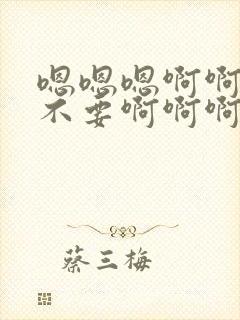 嗯嗯嗯啊啊
不要啊啊啊
蔡三梅